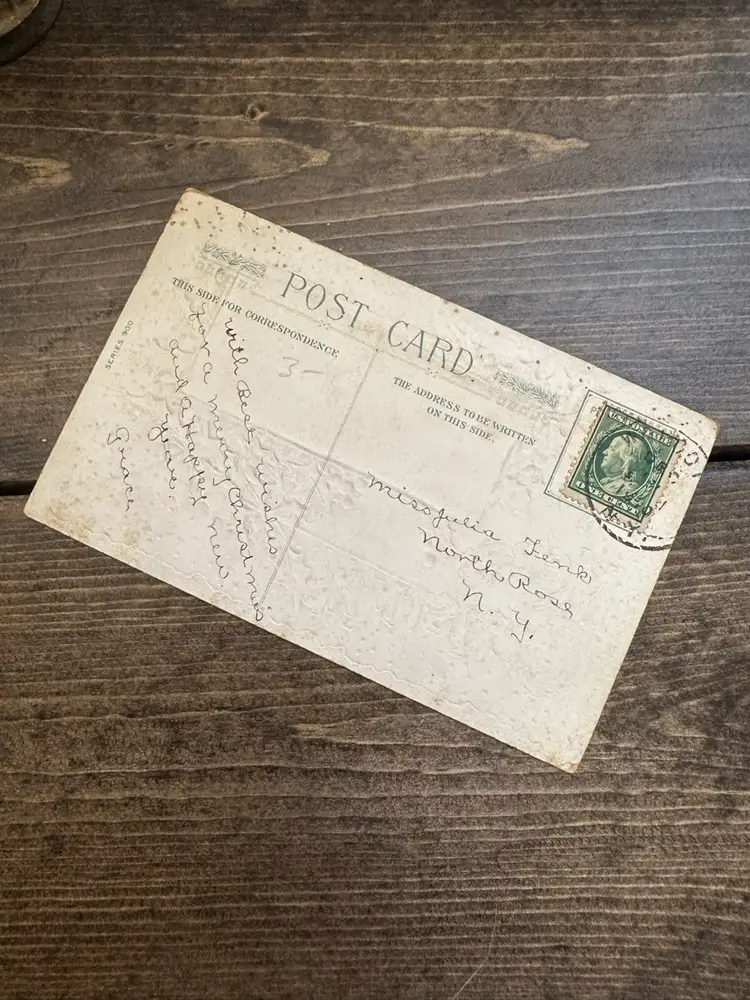 POST CARD
THIS SIDE FOR CORRESPONDENCE
THE ADDRESS TO BE WRITTEN
ON THIS SIDE.
SERIES 900
3-
with Best wishes
for a Merry Christmas
and a Happy New
year.
Grace
Miss Julia Fenk
North Rose
N. Y.
U.S. POSTAGE
ONE CENT